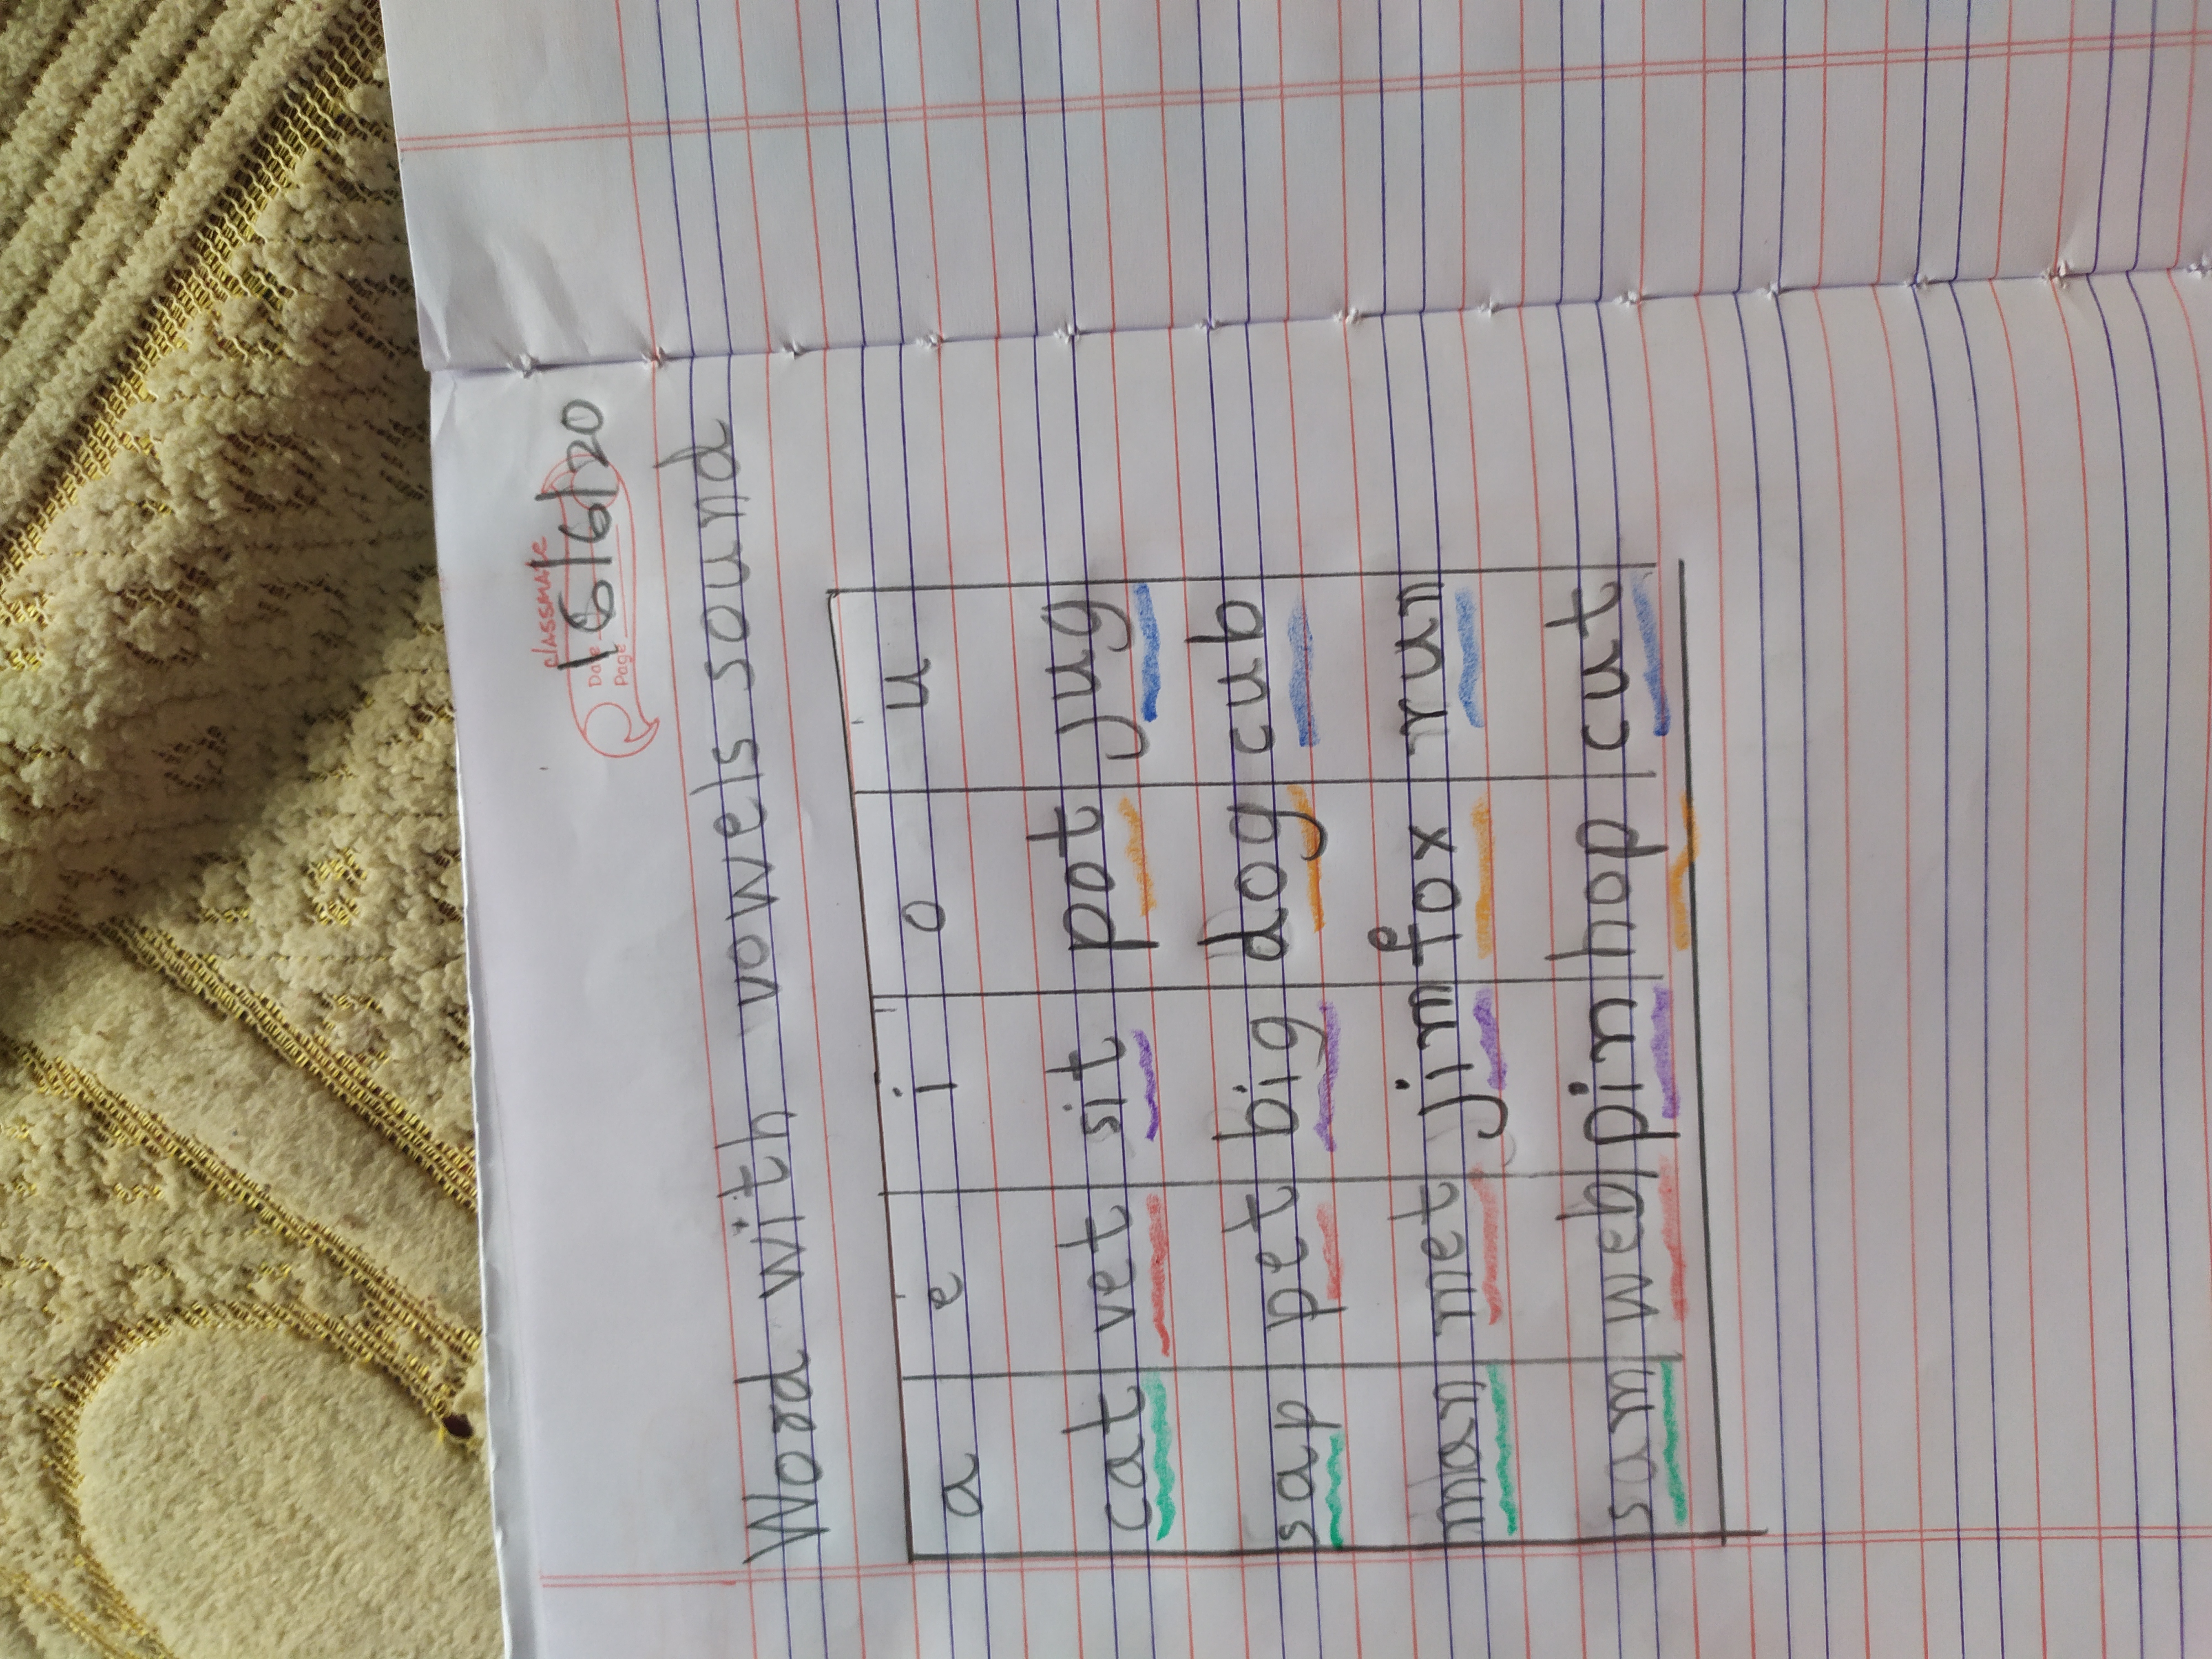 classmate
Date
Page
16/6/20
Word with vowels sound
a e i o u
cat vet sit pot jug
sap pet big dog cub
man met jim fox run
sam web pin hop cut